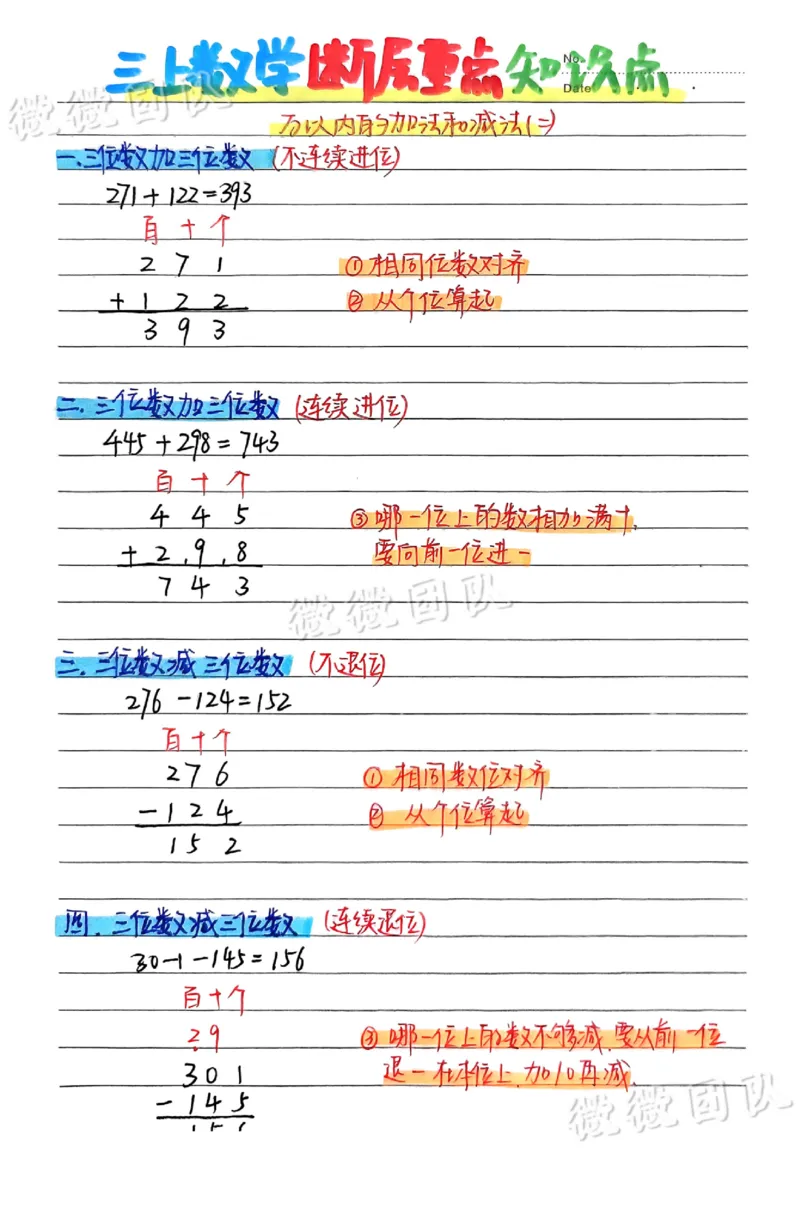 三上数学断层重点知识点
No.
Date
微微团队
万以内的加法和减法(二)
一.三位数加三位数 (不连续进位)
271+122=393
百 十 个
2 7 1
①相同位数对齐
+ 1 2 2
② 从个位算起
3 9 3
二. 三位数加三位数 (连续进位)
445+298=743
百 十 个
4 4 5
③哪一位上的数相加满十,
+ 2 . 9 . 8
要向前一位进一
7 4 3
微微团队
三. 三位数减三位数 (不退位)
276-124=152
百 十 个
2 7 6
① 相同数位对齐
- 1 2 4
② 从个位算起
1 5 2
四. 三位数减三位数 (连续退位)
30-1-145=156
百 十 个
2 9
③ 哪一位上的数不够减,要从前一位
3 0 1
退一在本位上,加10再减.
- 1 4 5
微微团队